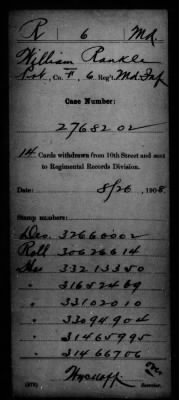 R 6 Md
William Rankle
Pvt, Co. F, 6 Reg't. Md Inf
Case Number:
2768202
14 Cards withdrawn from 10th Street and sent
to Regimental Records Division.
Date: 8/26, 1908.
Stamp numbers:
Des. 32660002
Roll 30626614
Mos 33213350
" 31652469
" 33102010
" 33094904
" 31465995
" 31466706